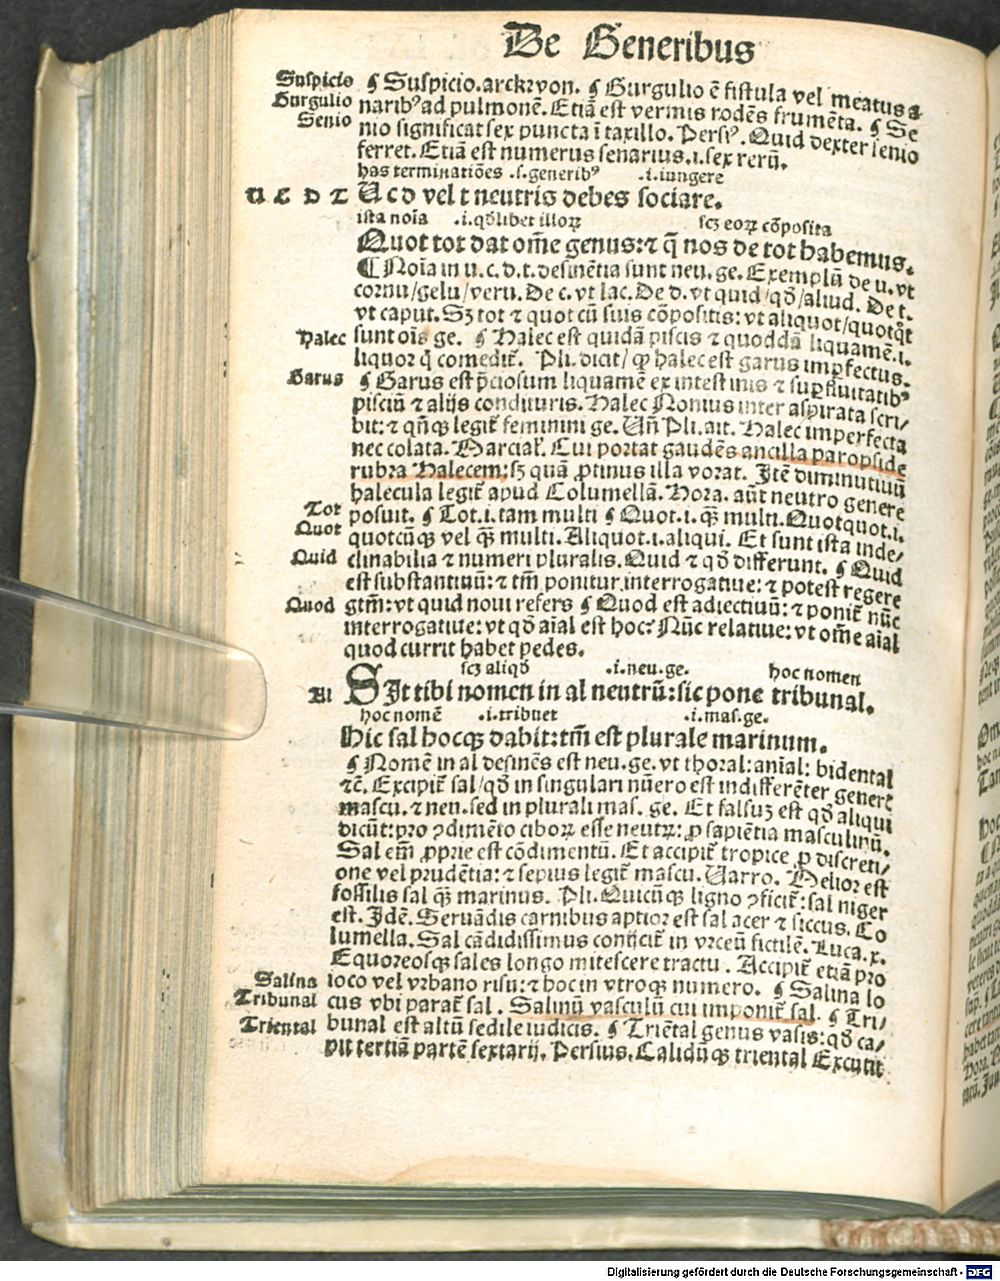 De Generibus
Suspicio ¶ Suspicio. arckwon. ¶ Gurgulio ē fistula vel meatus a-
Gurgulio naribꝰ ad pulmonē. Etiā est vermis rodēs frumēta. ¶ Se
Senio nio significat sex puncta ī taxillo. Persiꝰ. Quid dexter senio
ferret. Etiā est numerus senarius .i. sex rerū.
has terminatiōes .s. generibꝰ .i. iungere
U C D T U c d vel t neutris debes sociare.
ista noīa .i. qđlibet illoꝝ scꝫ eoꝝ cōposita
Quot tot dat om̄e genus: ⁊ q̄ nos de tot habemus.
¶ Noīa in u. c. d. t. desinētia sunt neu. ge. Exemplū de u. vt
cornu/gelu/veru. De c. vt lac. De d. vt quid/qđ/aliud. De t.
vt caput. Sꝫ tot ⁊ quot cū suis cōpositis: vt aliquot/quotqͦt
Halec sunt oīs ge. ¶ Halec est quidā piscis ⁊ quoddā liquamē .i.
liquor q̄ comedit̄. Pli. dicit/ ꝙ halec est garus imꝑfectus.
Garus ¶ Garus est p̄ciosum liquamē ex intestinis ⁊ suꝑfluitatibꝰ
pisciū ⁊ alijs condituris. Halec Nonius inter aspirata scri/
bit: ⁊ qn̄qꝫ legit̄ feminini ge. Un̄ Pli. ait. Halec imperfecta
nec colata. Marcial̄. Cui portat gaudēs ancilla paropside
rubra Halecem: sꝫ quā ꝓtinus illa vorat. Itē diminutiuū
halecula legit̄ apud Columellā. Hora. aūt neutro genere
Tot posuit. ¶ Tot .i. tam multi ¶ Quot .i. qꝫ̄ multi. Quotquot .i.
Quot quotcūqꝫ vel qꝫ̄ multi. Aliquot .i. aliqui. Et sunt ista inde/
Quid clinabilia ⁊ numeri pluralis. Quid ⁊ qđ differunt. ¶ Quid
est substantiuū: ⁊ tm̄ ponitur interrogatiue: ⁊ potest regere
Quod gtm̄: vt quid noui refers ¶ Quod est adiectiuū: ⁊ ponit̄ nūc
interrogatiue: vt qđ aīal est hoc? Nūc relatiue: vt om̄e aīal
quod currit habet pedes.
scꝫ aliqđ .i. neu. ge. hoc nomen
Al SIt tibi nomen in al neutrū: sic pone tribunal.
hoc nomē .i. tribuet .i. mas. ge.
Hic sal hocqꝫ dabit: tm̄ est plurale marinum.
¶ Nomē in al desinēs est neu. ge. vt thoral: anīal: bidental
⁊c̄. Excipit̄ sal/qđ in singulari nūero est indifferēter generꝭ
mascu. ⁊ neu. sed in plurali mas. ge. Et falsuꝫ est qđ aliqui
dicūt: pro ꝯdimēto ciboꝝ esse neutꝝ: ꝓ sapiētia masculinū.
Sal em̄ ꝓprie est cōdimentū. Et accipit̄ tropice ꝓ discreti/
one vel prudētia: ⁊ sepius legit̄ mascu. Varro. Melior est
fossilis sal qꝫ̄ marinus. Pli. Quicūqꝫ ligno ꝯficit̄: sal niger
est. Idē. Seruādis carnibus aptior est sal acer ⁊ siccus. Co
lumella. Sal cādidissimus conijcit̄ in vrceū fictilē. Luca. x.
Equoreosqꝫ sales longo mitescere tractu. Accipit̄ etiā pro
Salina ioco vel vrbano risu: ⁊ hoc in vtroqꝫ numero. ¶ Salina lo
Tribunal cus vbi parat̄ sal. Salinū vasculū cui imponit̄ sal. ¶ Tri/
Triental bunal est altū sedile iudicis. ¶ Triētal genus vasis: qđ ca/
pit tertiā partē sextarij. Persius. Calidūqꝫ triental Excutit
Digitalisierung gefördert durch die Deutsche Forschungsgemeinschaft - DFG